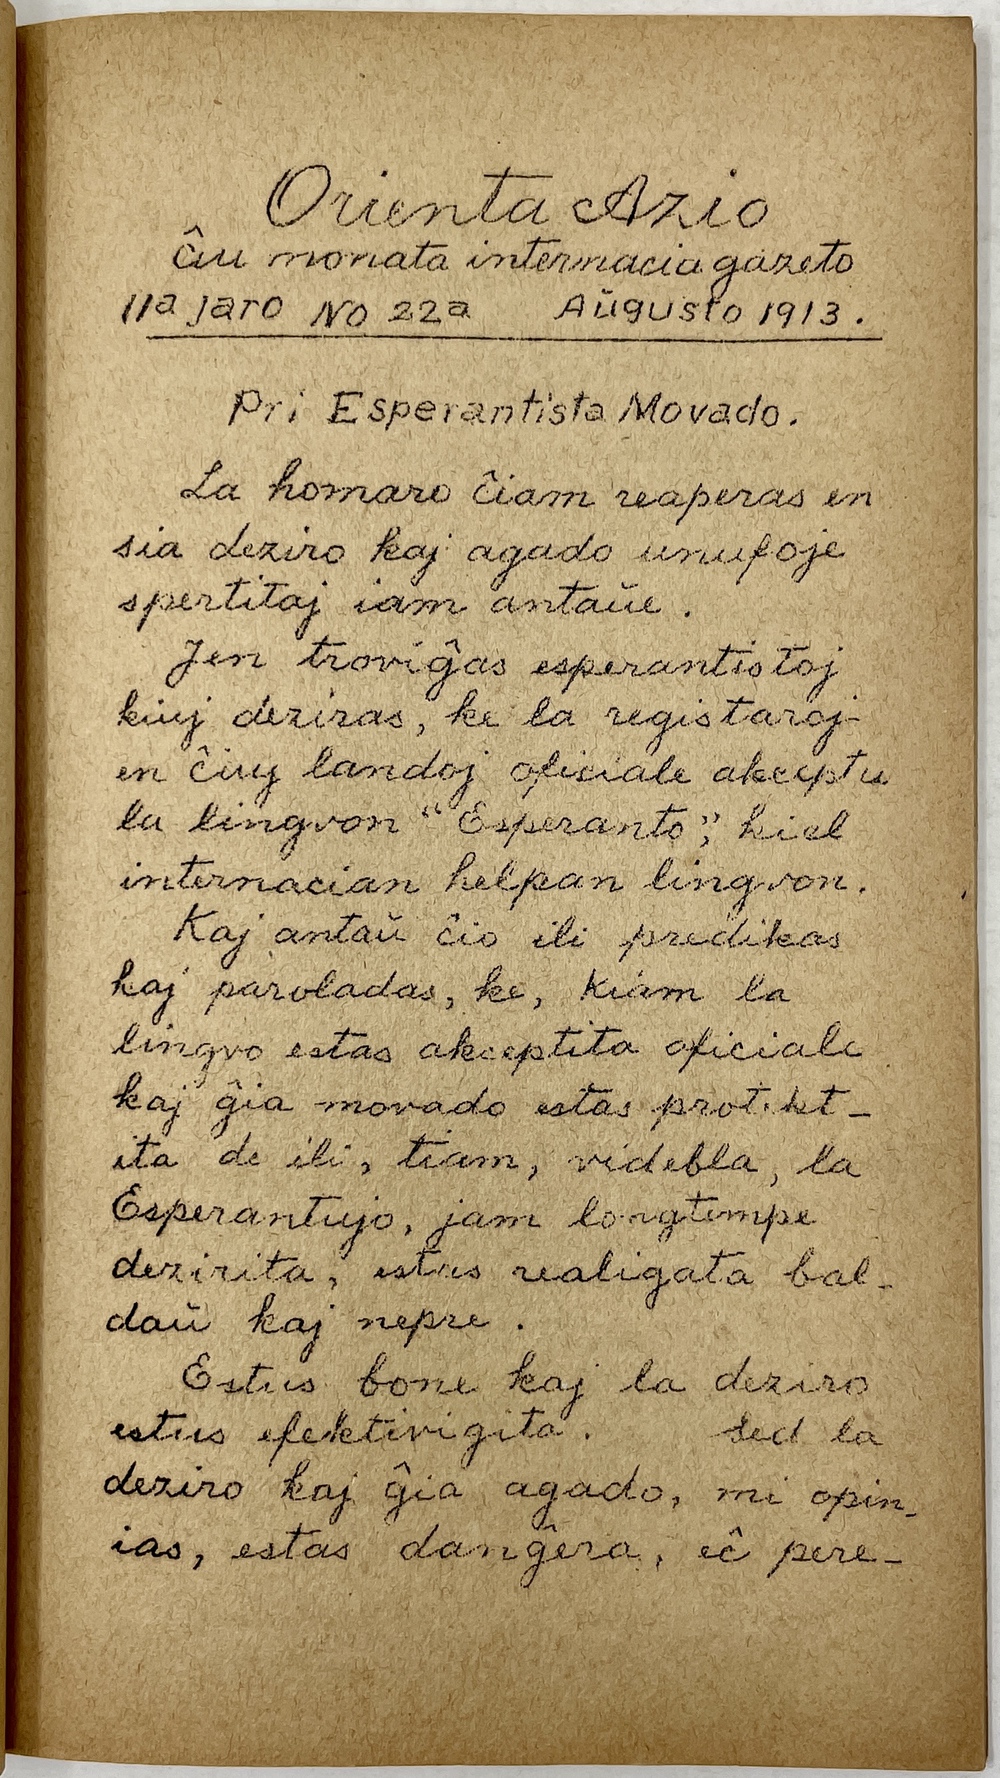 Orienta Azio
ĉiu monata internacia gazeto
IIa jaro No 22a Aŭgusto 1913.
Pri Esperantista Movado.
La homaro ĉiam reaperas en
sia deziro kaj agado unufoje
spertitaj iam antaŭe.
Jen troviĝas esperantistoj
kiuj deziras, ke la registaroj
en ĉiuj landoj oficiale akceptu
la lingvon "Esperanto", kiel
internacian helpan lingvon.
Kaj antaŭ ĉio ili predikas
kaj paroladas, ke, kiam la
lingvo estas akceptita oficiale
kaj ĝia movado estas protekt-
ita de ili, tiam, videbla, la
Esperantujo, jam longtempe
dezirita, estus realigata bal-
daŭ kaj nepre.
Estus bone kaj la deziro
estus efektivigita. Sed la
deziro kaj ĝia agado, mi opin-
ias, estas danĝera, eĉ pere-